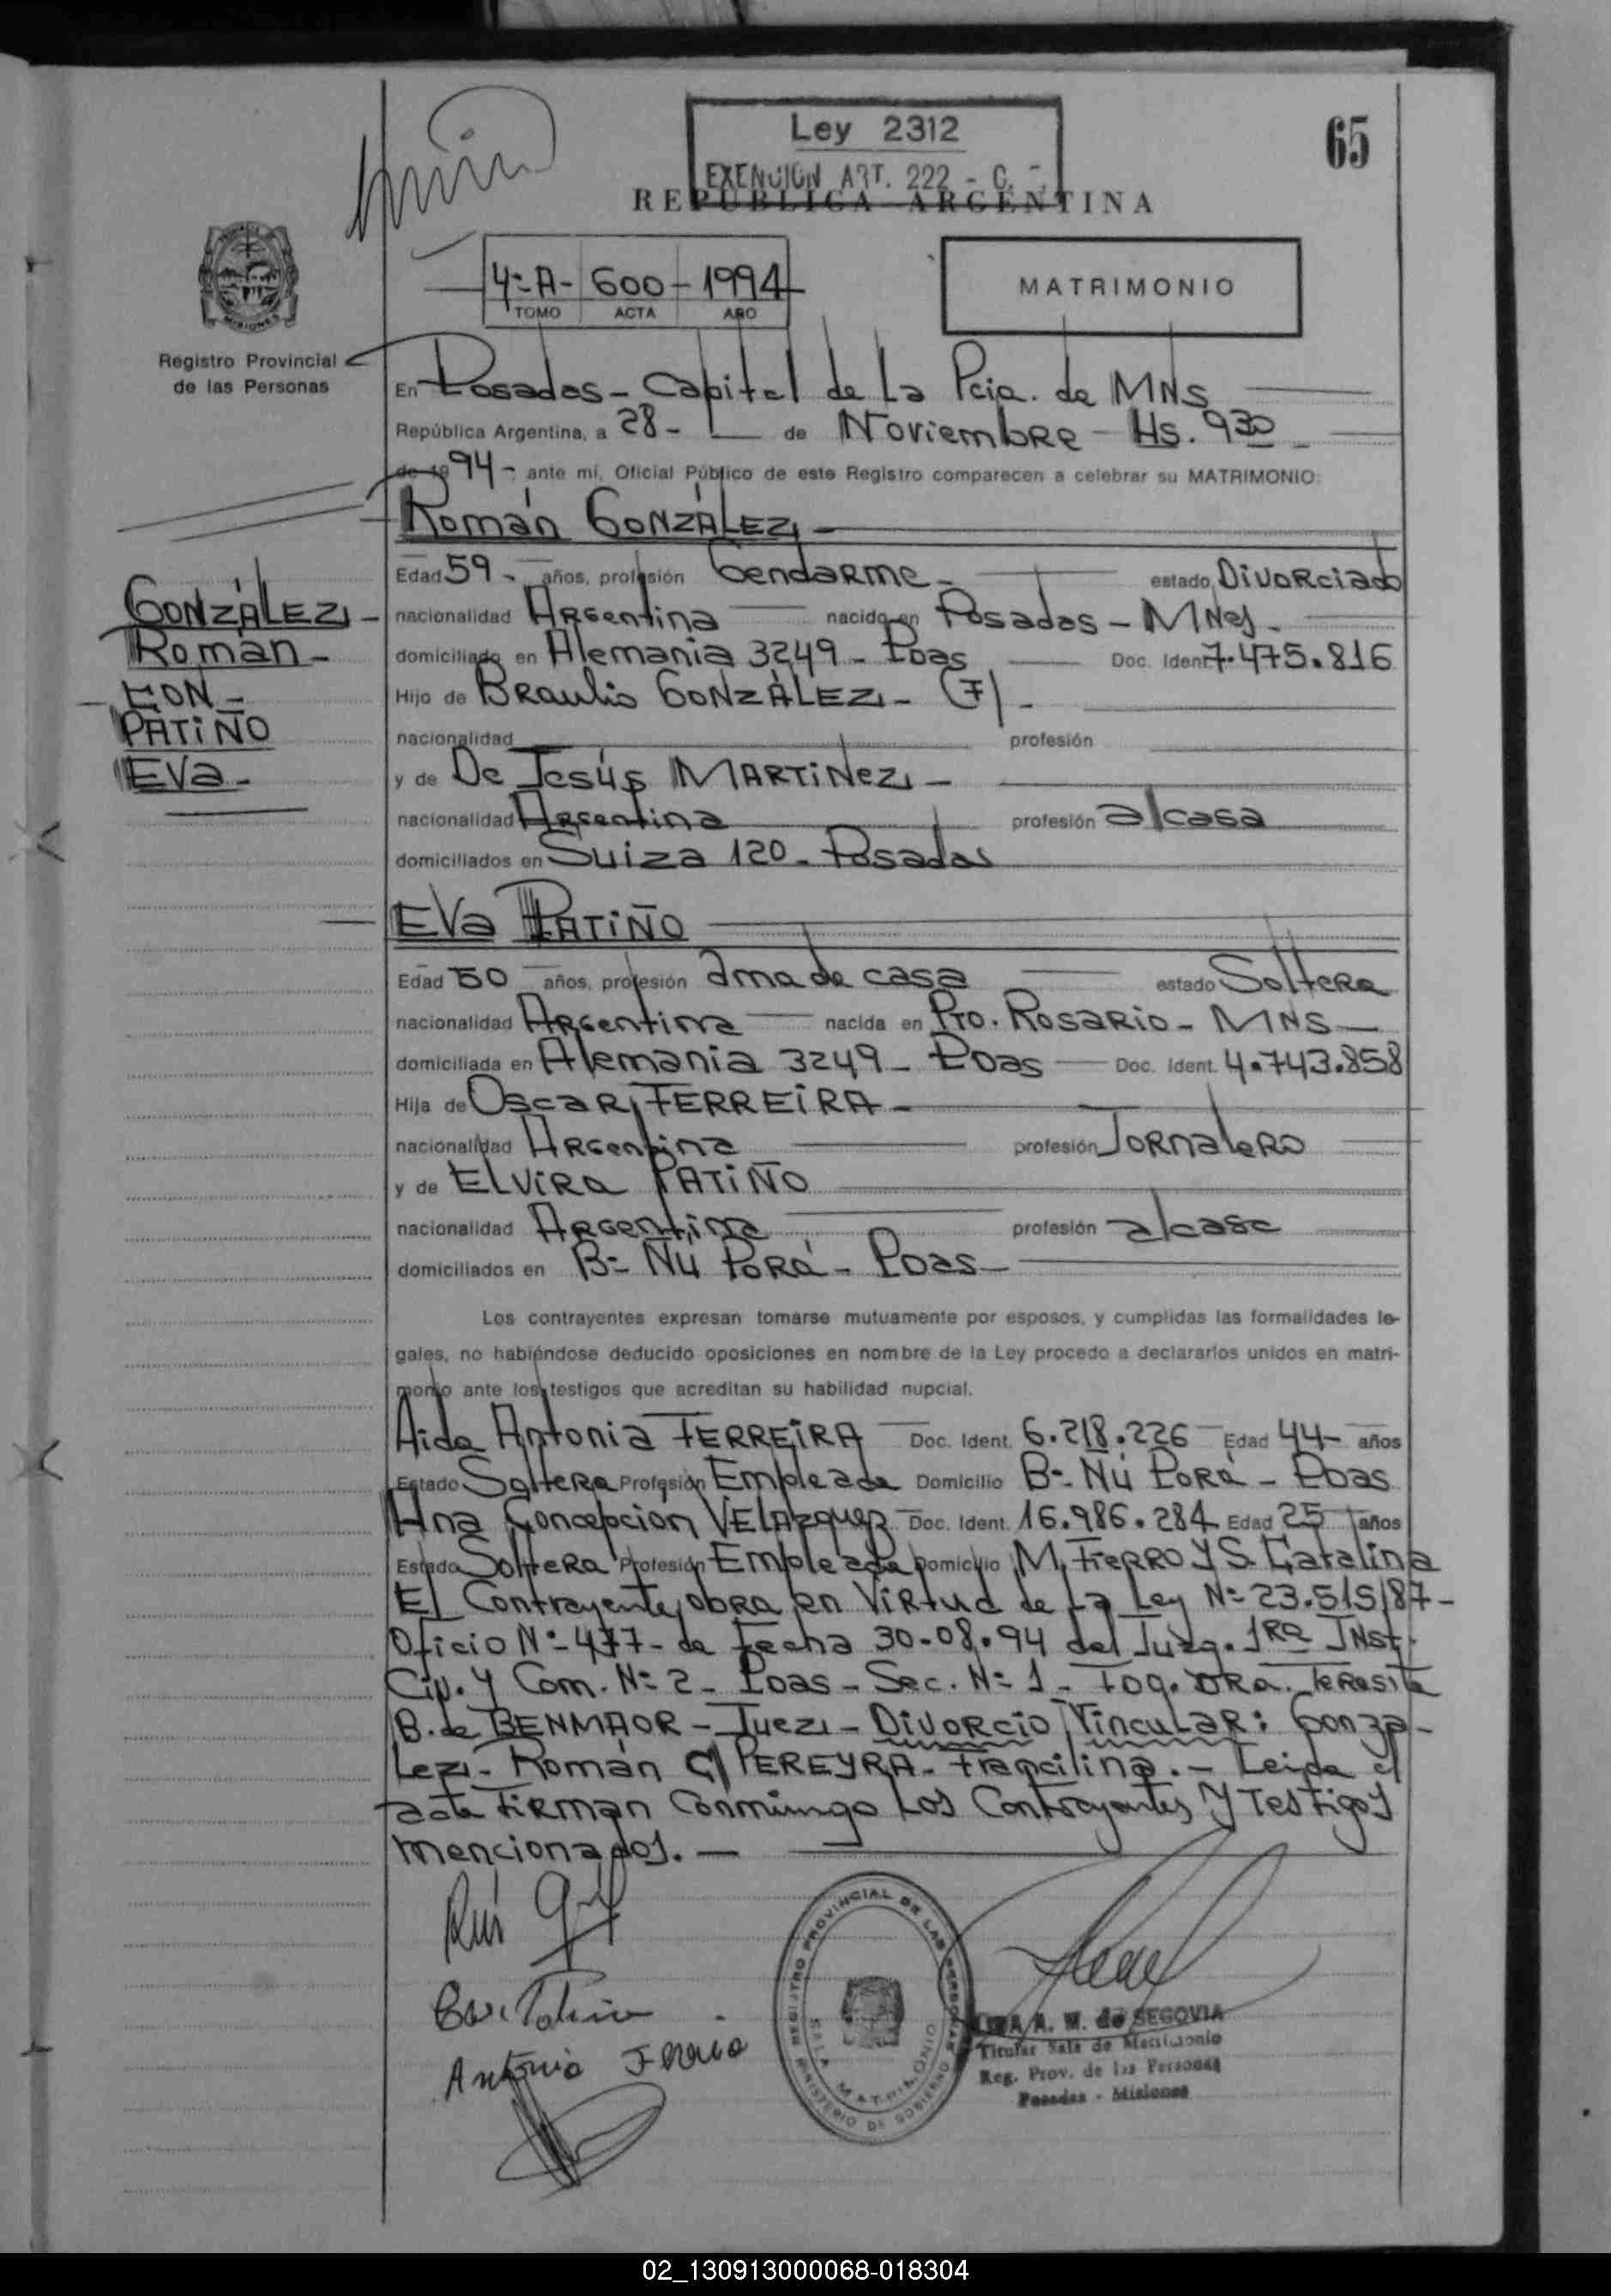 Ley 2312
EXENCION ART. 222 - C.
65
REPUBLICA ARGENTINA
4º-A- 600 - 1994
TOMO ACTA AÑO
MATRIMONIO
MISIONES
Registro Provincial
de las Personas
En Posadas - Capital de La Pcia. de MNS
República Argentina, a 28 - de Noviembre - Hs. 930
de 1994 - ante mí, Oficial Público de este Registro comparecen a celebrar su MATRIMONIO:
Román GONZÁLEZ -
Edad 59 - años, profesión Gendarme - estado Divorciado
nacionalidad Argentina nacido en Posadas - MNes -
domiciliado en Alemania 3249 - Pdas Doc. Ident. 7.475.816
Hijo de Braulio GONZÁLEZ - (F) -
nacionalidad profesión
y de De Jesús MARTINEZ -
nacionalidad Argentina profesión a/casa
domiciliados en Suiza 120 - Posadas
GONZÁLEZ -
Román -
CON -
PATIÑO
EVa -
EVa PATIÑO
Edad 50 años, profesión ama de casa estado Soltera
nacionalidad Argentina nacida en Pto. Rosario - MNS
domiciliada en Alemania 3249 - Pdas Doc. Ident. 4.743.858
Hija de Oscar FERREIRA -
nacionalidad Argentina profesión Jornalero
y de ELVIRA PATIÑO
nacionalidad Argentina profesión a/casa
domiciliados en Bº Ñu Porá - Pdas -
Los contrayentes expresan tomarse mutuamente por esposos, y cumplidas las formalidades le-
gales, no habiéndose deducido oposiciones en nombre de la Ley procedo a declararlos unidos en matri-
monio ante los testigos que acreditan su habilidad nupcial.
Aida Antonia FERREIRA Doc. Ident. 6.218.226 Edad 44 - años
Estado Soltera Profesión Empleada Domicilio Bº Ñú Porá - Pdas
Ana Concepcion VELAZQUEZ Doc. Ident. 16.986.284 Edad 25 años
Estado Soltera Profesión Empleada Domicilio M. Fierro y S. Catalina
El Contrayente obra en Virtud de La Ley Nº 23.515/87 -
Oficio Nº 477 - de Fecha 30-08-94 del Juzg. 1RA INST.
Civ. y Com. Nº 2 - Pdas - Sec. Nº 1 - Fdo. DRA. Teresita
B. de BENMAOR - Juez - Divorcio Vincular: Gonzá-
lez - Román C/ PEREYRA - Francilina. - Leida el
acta Firman Conmingo Los Contrayentes y Testigos
mencionados. -
REGISTRO PROVINCIAL DE LAS PERSONAS
SALA MATRIMONIO
MINISTERIO DE GOBIERNO
Antonia
A. M. de SEGOVIA
Titular Sala de Matrimonio
Reg. Prov. de las Personas
Posadas - Misiones
02_130913000068-018304